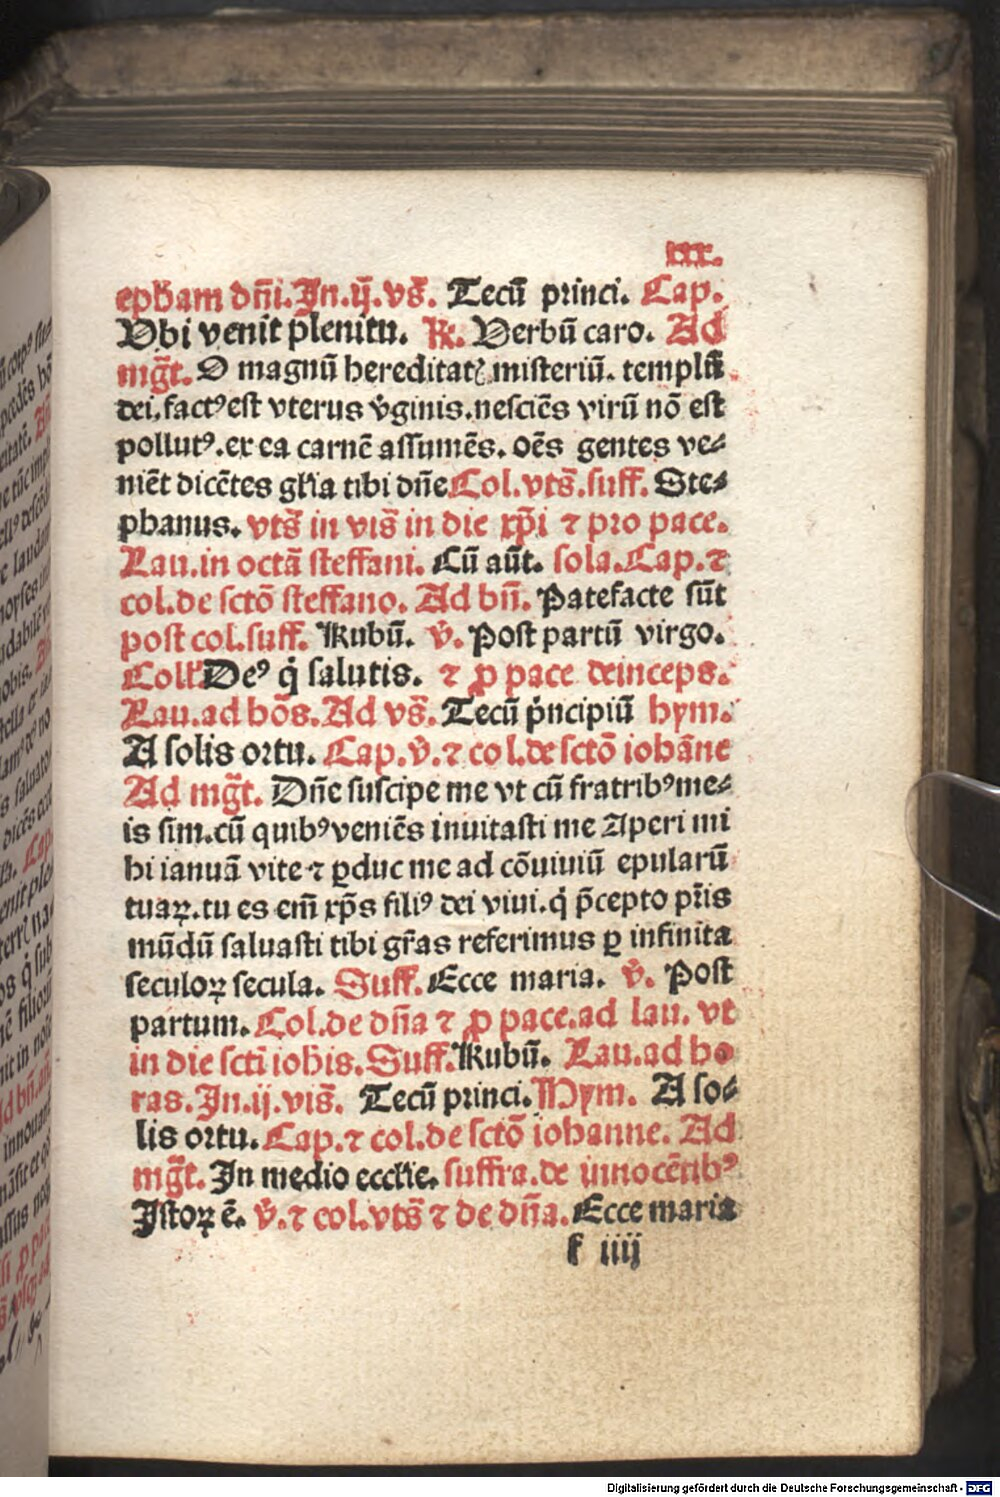 iii.
ephām dn̄i. In .ij. vs̄. Tecū princi. Cap.
Vbi venit plenitu. ℟. Verbū caro. Ad
mg̅t. O magnū hereditatꝫ misteriū. templū
dei, factꝰ est vterus v̇ginis. nesciēs virū nō est
pollutꝰ. ex ea carnē assumēs. oēs gentes ve⸗
niēt dicētes gl̄ia tibi dn̄e Col. vts̄. suff. Ste⸗
phanus. vts̄ in vis̄ in die xp̄i ⁊ pro pace.
Lau. in octā steffani. Cū aūt. sola. Cap. ⁊
col. de sctō steffano. Ad bn̄. Patefacte sūt
post col. suff. Rubū. v̇. Post partū virgo.
Coll' Deꝰ q̇ salutis. ⁊ ꝓ pace deinceps.
Lau. ad hōs. Ad vs̄. Tecū ṗncipiū hym.
A solis ortu. Cap. v̇. ⁊ col. de sctō iohāne
Ad mg̅t. Dn̄e suscipe me vt cū fratribꝰ me⸗
is sim. cū quibꝰ veniēs inuitasti me Aperi mi
hi ianuā vite ⁊ ꝑduc me ad cōuiuiū epularū
tuaꝝ. tu es em̄ xp̄s filiꝰ dei viui. q̇ p̄cepto pr̄is
mūdū saluasti tibi gr̄as referimus ꝑ infinita
seculoꝝ secula. Suff. Ecce maria. v̇. Post
partum. Col. de dn̄a ⁊ ꝓ pace. ad lau. vt
in die scti ioh̄is. Suff. Rubū. Lau. ad ho
ras. In .ij. vis̄. Tecū princi. Hym. A so⸗
lis ortu. Cap. ⁊ col. de sctō iohanne. Ad
mg̅t. In medio eccl̄ie. suffra. de innocētibꝰ
Istoꝝ ē. v̇. ⁊ col. vts̄ ⁊ de dn̄a. Ecce maria
f iiij
Digitalisierung gefördert durch die Deutsche Forschungsgemeinschaft - DFG